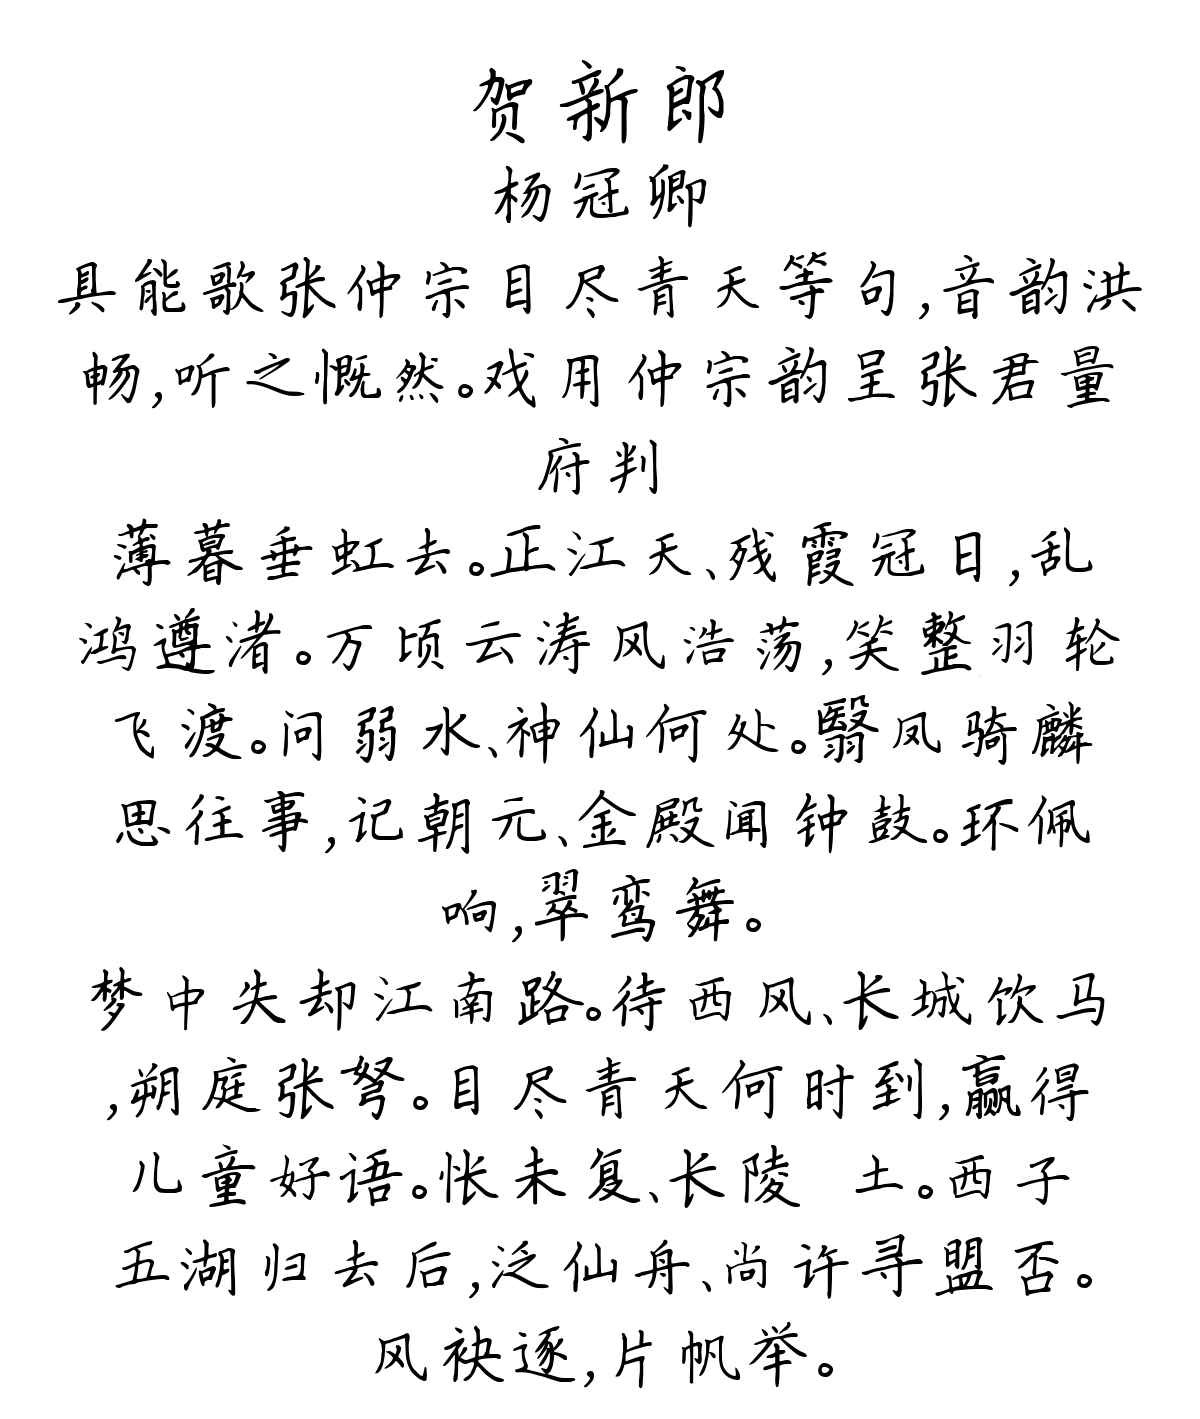 贺新郎
杨冠卿
具能歌张仲宗目尽青天等句,音韵洪
畅,听之慨然。戏用仲宗韵呈张君量
府判
薄暮垂虹去。正江天、残霞冠日,乱
鸿遵渚。万顷云涛风浩荡,笑整羽轮
飞渡。问弱水、神仙何处。翳凤骑麟
思往事,记朝元、金殿闻钟鼓。环佩
响,翠鸾舞。
梦中失却江南路。待西风、长城饮马
,朔庭张弩。目尽青天何时到,赢得
儿童好语。怅未复、长陵 土。西子
五湖归去后,泛仙舟、尚许寻盟否。
风袂逐,片帆举。